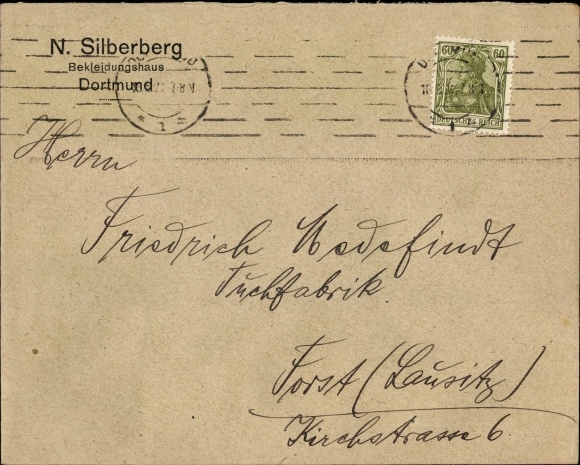 N. Silberberg
Bekleidungshaus
Dortmund
60 60
DEUTSCHES REICH
Herrn
Friedrich Medefindt
Tuchfabrik.
Forst (Lausitz)
Kirchstrasse 6.